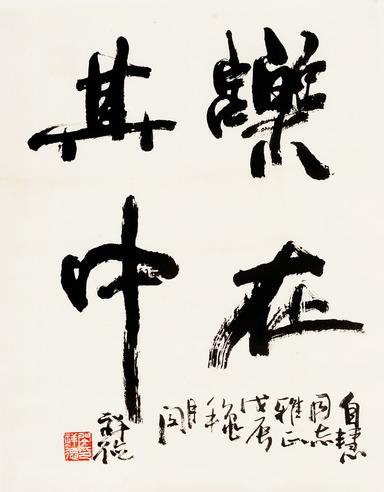 樂在
其中
自慧
同志
雅正
戊辰
穐
月閔
祥德